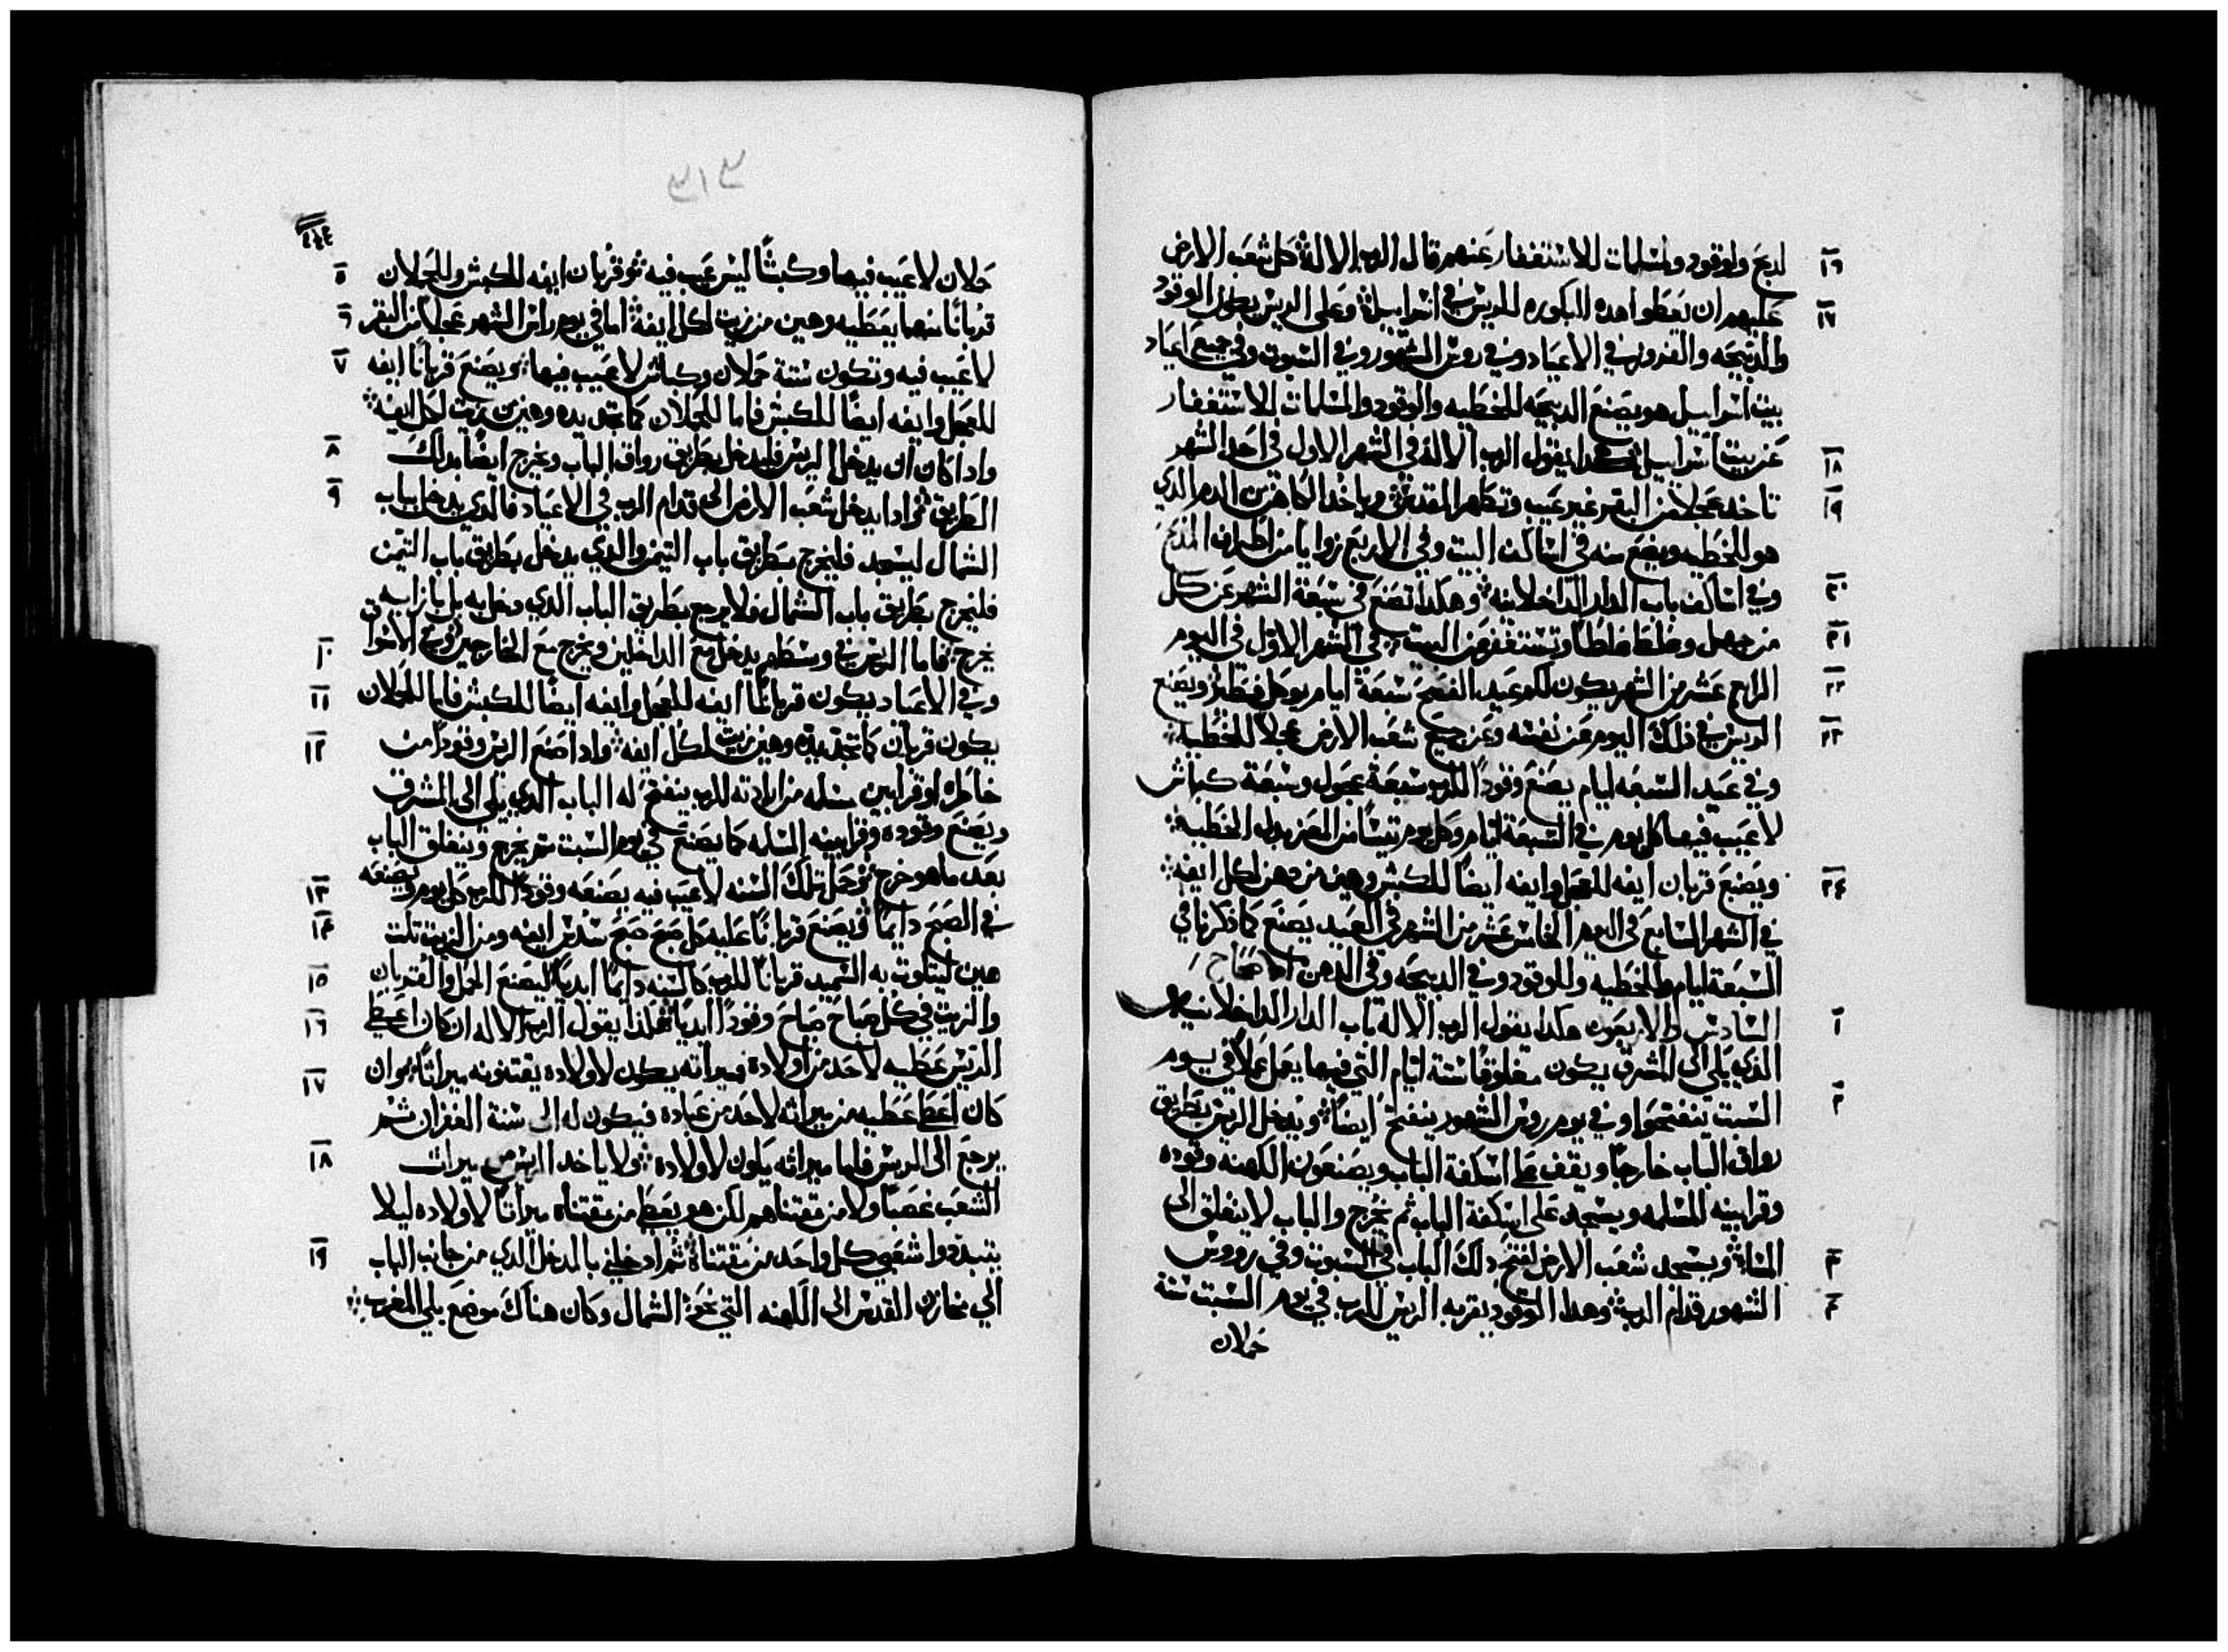 لدبح ولوقود ولمسلمات للاستغفار عنهم قال الرب الاله كل شعب الارض ١٦
عليهم ان يعطوا هده الباكوره للريس في اسراييل وعلى الريس يطول الوقود ١٧
والدبيحه والقدور في الاعياد وفي روس الشهور وفي السبوت وفي جميع اعياد
بيت اسراييل هو يصنع الدبيحه للخطيه والوقود والمسلمات للاستغفار
عن بيت اسراييل هكدا يقول الرب الاله في الشهر الاول في احد الشهر ١٨
تاخد عجلا من البقر غير عيب وتطهر المقدس وياخد الكاهن من الدم الدي ١٩
هو للخطيه ويضع منه في اساكف البيت وفي الاربع زوايا من اطراف المدبح
وفي اساكف باب الدار الداخلانيه وهكدا تصنع في سبعة الشهر عن كل ٢٠
من جهل وغلط غلطا وتستغفر عن البيت في الشهر الاول في اليوم ٢١
الرابع عشر من الشهر يكون لكم عيد الفصح سبعة ايام يوكل فطير ويصنع ٢٢
الريس في ذلك اليوم عن نفسه وعن جميع شعب الارض عجلا للخطيه ٢٣
وفي عيد السبعه ايام يصنع وقودا للرب سبعة عجول وسبعة كباش
لا عيب فيها كل يوم في السبعة ايام وكل يوم تيسا من المعز بدل الخطيه
ويصنع قربان ايفه للعجل وايفه ايضا للكبش وهين من دهن لكل ايفه ٢٤
في الشهر السابع في اليوم الخامس عشر من الشهر في العيد يصنع كما ذكرنا في
السبعة ايام وللخطيه وللوقود وفي الدبيحه وفي الدهن اصحاح
السادس والاربعون هكدا يقول الرب الاله باب الدار الداخلانيه ١
الدي يلي الى المشرق يكون مغلوقا ستة ايام التي فيها يعمل عملا في يوم
السبت ينفتح وفي يوم روس الشهور ينفتح ايضا ويدخل الريس بطريق ٢
رواق الباب خارجا ويقف على اسكفة الباب ويصنعون الكهنه وقوده
وقرابينه المسلمه ويسجد على اسكفة الباب ثم يخرج والباب لا ينغلق الى
المساء ويسجد شعب الارض لفتح دلك الباب في السبوت وفي رووس ٣
الشهور قدام الرب وهدا الوقود يقربه الريس للرب في يوم السبت ستة ٤
حملان
٣١٣
حملان لا عيب فيها وكبشا ليس عيب فيه وقربان ايفه للكبش وللحملان ٥
قربانا منهما يعطيه وهين من زيت لكل ايفه اما في يوم راس الشهر عجلا من البقر ٦
لا عيب فيه وتكون ستة حملان وكباش لا عيب فيها ويصنع قربانا ايفه ٧
للعجل وايفه ايضا للكبش فاما للحملان كما تجد يده وهين من زيت لكل ايفه
وادا كان ان يدخل الريس فليدخل بطريق رواق الباب ويخرج ايضا بدلك ٨
الطريق ثم ادا يدخل شعب الارض الى قدام الرب في الاعياد فالدي يدخل بباب ٩
الشمال ليسجد فليخرج بطريق باب التيمن والدي يدخل بطريق باب التيمن
فليخرج بطريق باب الشمال فلا يرجع بطريق الباب الدي دخل به بل بازايه
يخرج فاما الريس في وسطهم يدخل مع الداخلين ويخرج مع الخارجين وفي الاسواق ١٠
وفي الاعياد يكون قربانا ايفه للعجل وايفه ايضا للكبش فاما للحملان ١١
يكون قربان كما تجد يده وهين زيت لكل ايفه وادا صنع الريس وقودا من ١٢
خاطره او قرابين مسلمه من ارادته للرب ينفتح له الباب الدي يلي الى المشرق
ويصنع وقوده وقرابينه المسلمه كما يصنع في يوم السبت ثم يخرج وينغلق الباب
بعد ما هو خرج وحمل تلك السنه لا عيب فيه يصنعه وقودا للرب كل يوم ويصنعه ١٣
في الصبح دايما ويصنع قربانا عليه كل صبح صبح سدس ايفه ومن الزيت تلت ١٤
هين ليتلوت به السميد قربانا للرب كالسنه دايما ابديا ليصنع الحمل والقربان ١٥
والزيت في كل صباح صباح وقودا ابديا هكدا يقول الرب الاله ان كان اعطى ١٦
الريس عطيه لاحد من اولاده فميراثه يكون لاولاده يقتنونه ميراثا وان ١٧
كان اعطى عطيه من ميراثه لاحد من عباده فيكون له الى سنة الغفران ثم
يرجع الى الريس فاما ميراثه يكون لاولاده ولا ياخد الريس من ميرات ١٨
الشعب غصبا ولا من مقتناهم لكن هو يعطي من مقتناه ميراثا لاولاده ليلا
يتبددوا شعبي كل واحد من مقتناه ثم ادخلني بالمدخل الدي من جانب الباب ١٩
الي مخازن القدس الى الكهنه التي نحو الشمال وكان هناك موضع يلي المغرب